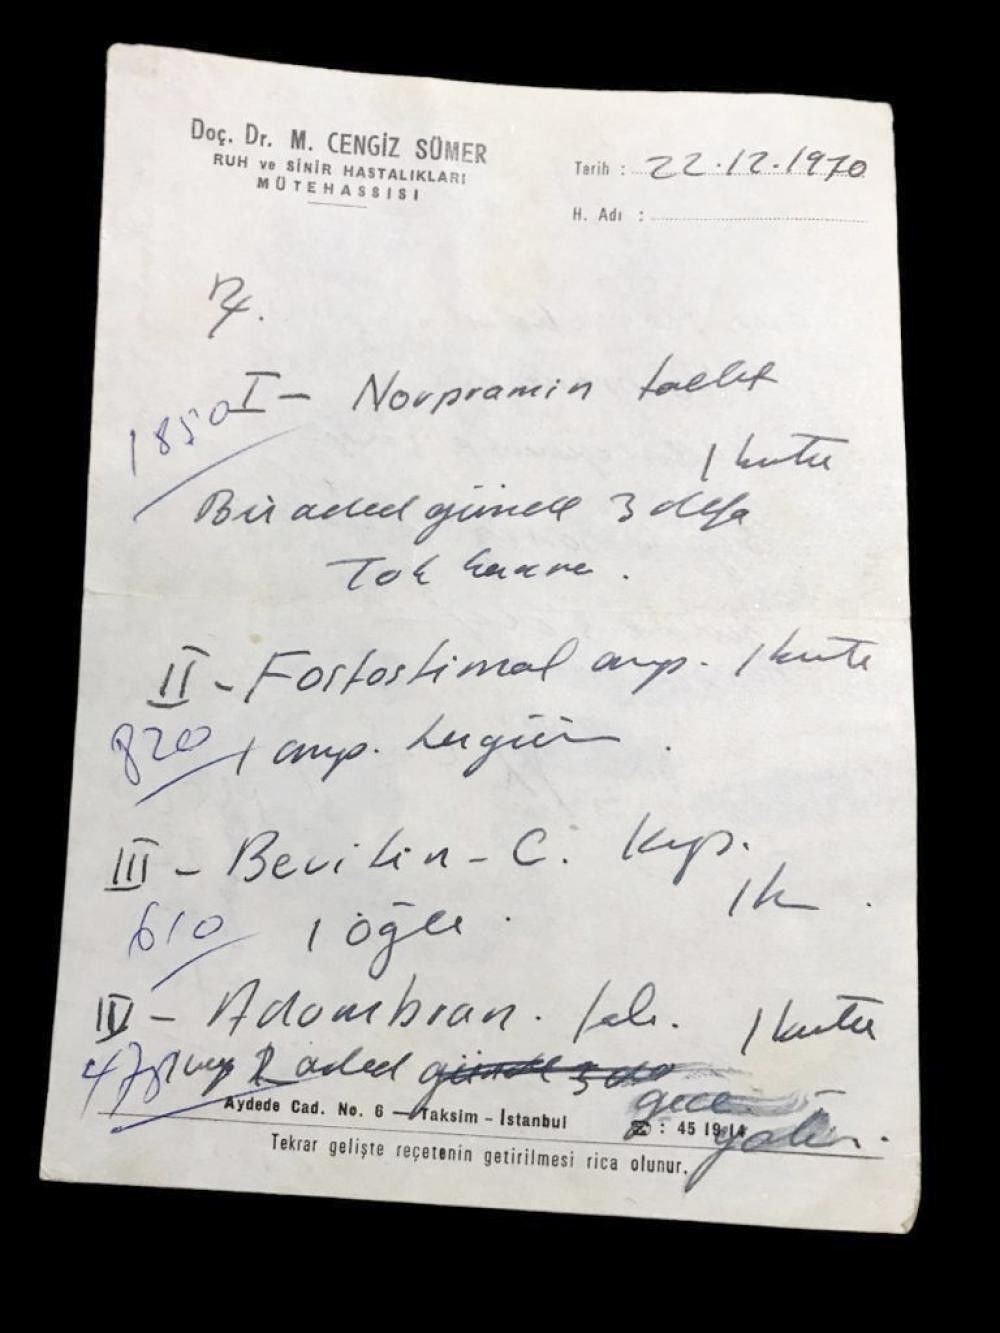 Doç. Dr. M. CENGİZ SÜMER
RUH ve SİNİR HASTALIKLARI
MÜTEHASSISI
Tarih : 22.12.1970
H. Adı :
I - Norpramin tablet
1850
1 kutu
Bir aded günde 3 defa
Tok karna.
II - Fosfostimol amp. 1 kutu
820
1 amp. hergün.
III - Bevitin - C. Kap.
1 k.
610
1 öğle.
IV - Adombran. tab. 1 kutu
478
aded günde 3
gece
yatar.
Aydede Cad. No. 6 — Taksim - İstanbul
: 45 19 14
Tekrar gelişte reçetenin getirilmesi rica olunur.